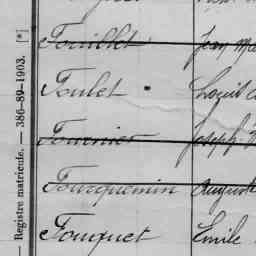 Registre matricule. — 386-89-1903. [*]
Fouillet Jean
Foulet Louis
Fournier Joseph
Fourquemin Auguste
Fouquet Emile